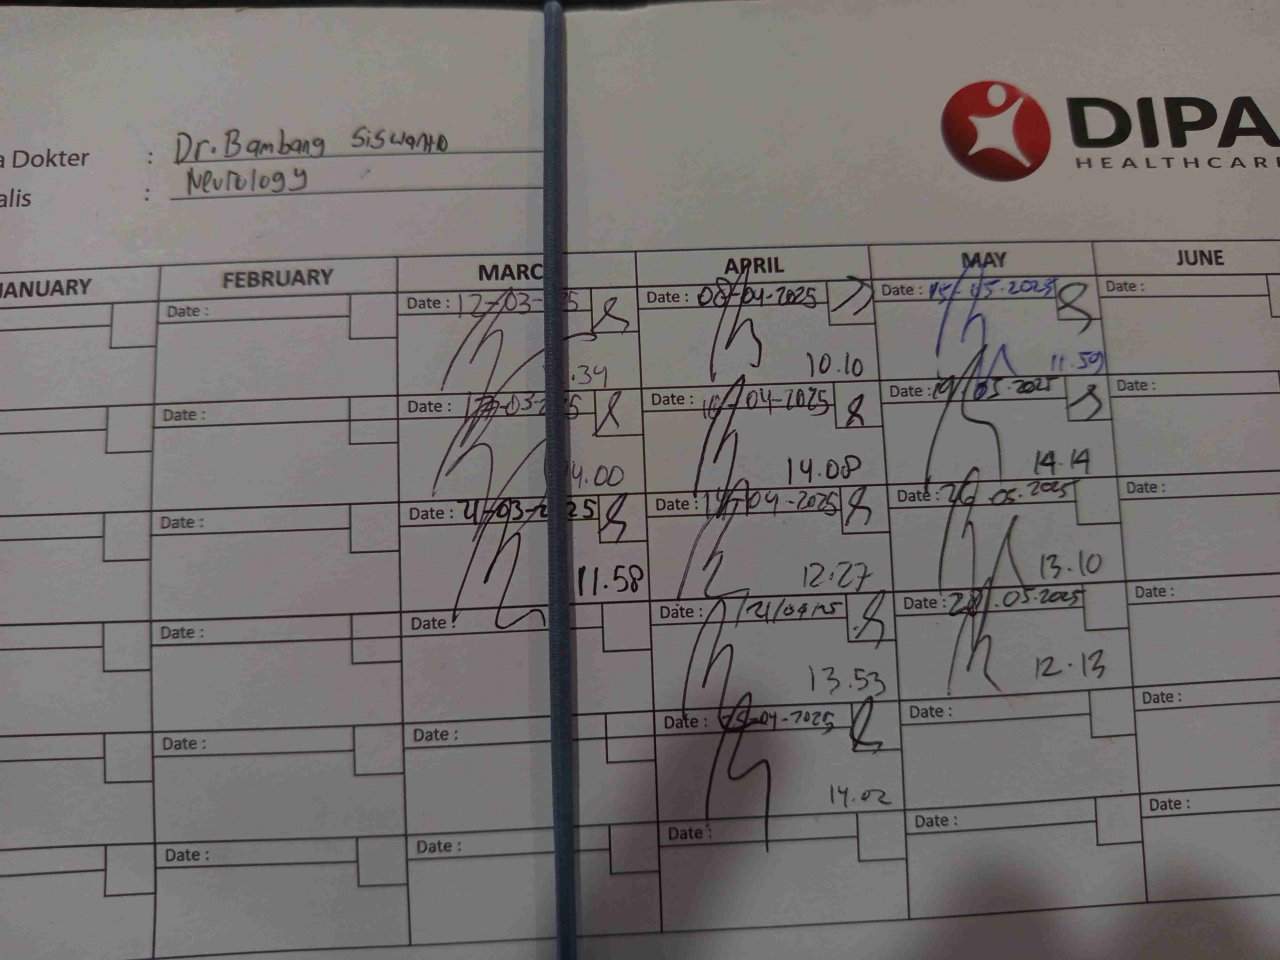 a Dokter : Dr. Bambang Siswanto
alis : Neurology
DIPA
HEALTHCAR
ANUARY FEBRUARY MARC APRIL MAY JUNE
Date : Date : 12-03- 25 Date : 08-04-2025 Date : 15-05-2025 Date :
.34 10.10 11.59
Date : Date : -03-2025 Date : -04-2025 Date : 19 05.2025 Date :
14.00 14.08 14.14
Date : Date : 21-03-2025 Date : -04-2025 Date : 26 .05.2025 Date :
11.58 12.27 13.10
Date : Date : Date : 21/04/25 Date : 28.05.2025 Date :
13.53 12.13
Date : Date : Date : -04-2025 Date : Date :
14.02
Date : Date : Date : Date : Date :